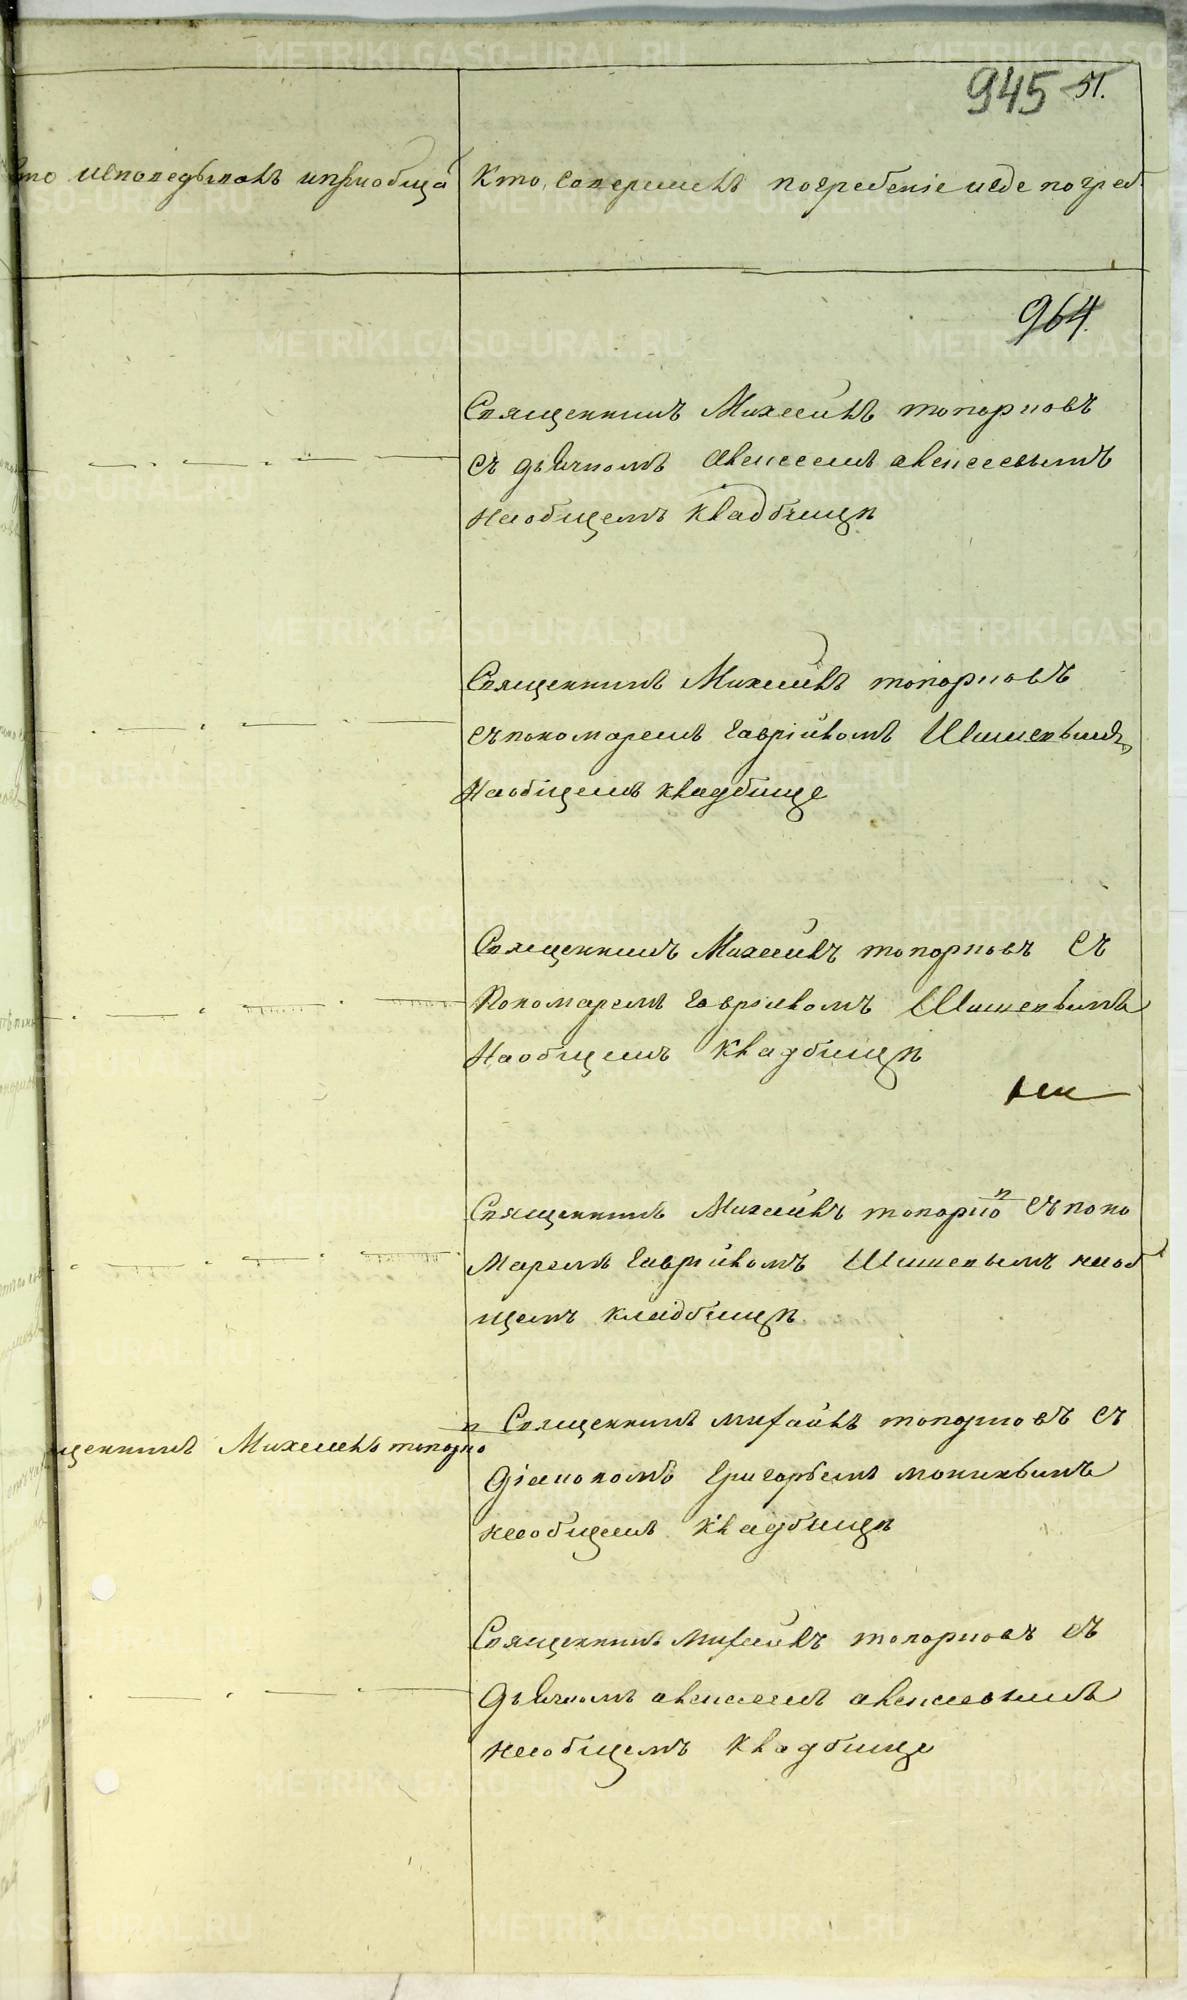 945 51.
то исповедывалъ и приобща
Кто, совершилъ погребенiе и где погреб.
964.
Священникъ Михаилъ топорковъ
съ дьячкомъ алексеемъ алексеевымъ
на общемъ кладбищѣ
Священникъ Михаилъ топорковъ
съ пономаремъ Гаврiиломъ
На общемъ кладбище
Священникъ Михаилъ топорковъ съ
Пономаремъ Гаврiиломъ
На общемъ кладбищѣ
Священникъ Михаилъ топорковъ съ поно
маремъ Гаврiиломъ на об
щемъ кладбищѣ
щенникъ Михаилъ топорковъ
Священникъ михаилъ топорковъ съ
дiакономъ Григорьемъ
на общемъ кладбищѣ
Священникъ михаилъ топорковъ съ
дьячкомъ алексеемъ алексеевымъ
на общемъ кладбище
METRIKI.GASO-URAL.RU